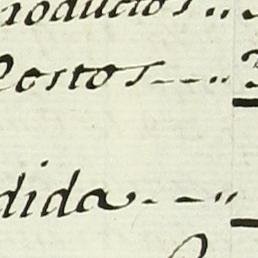 roductos..
Costos---..
dida.--..